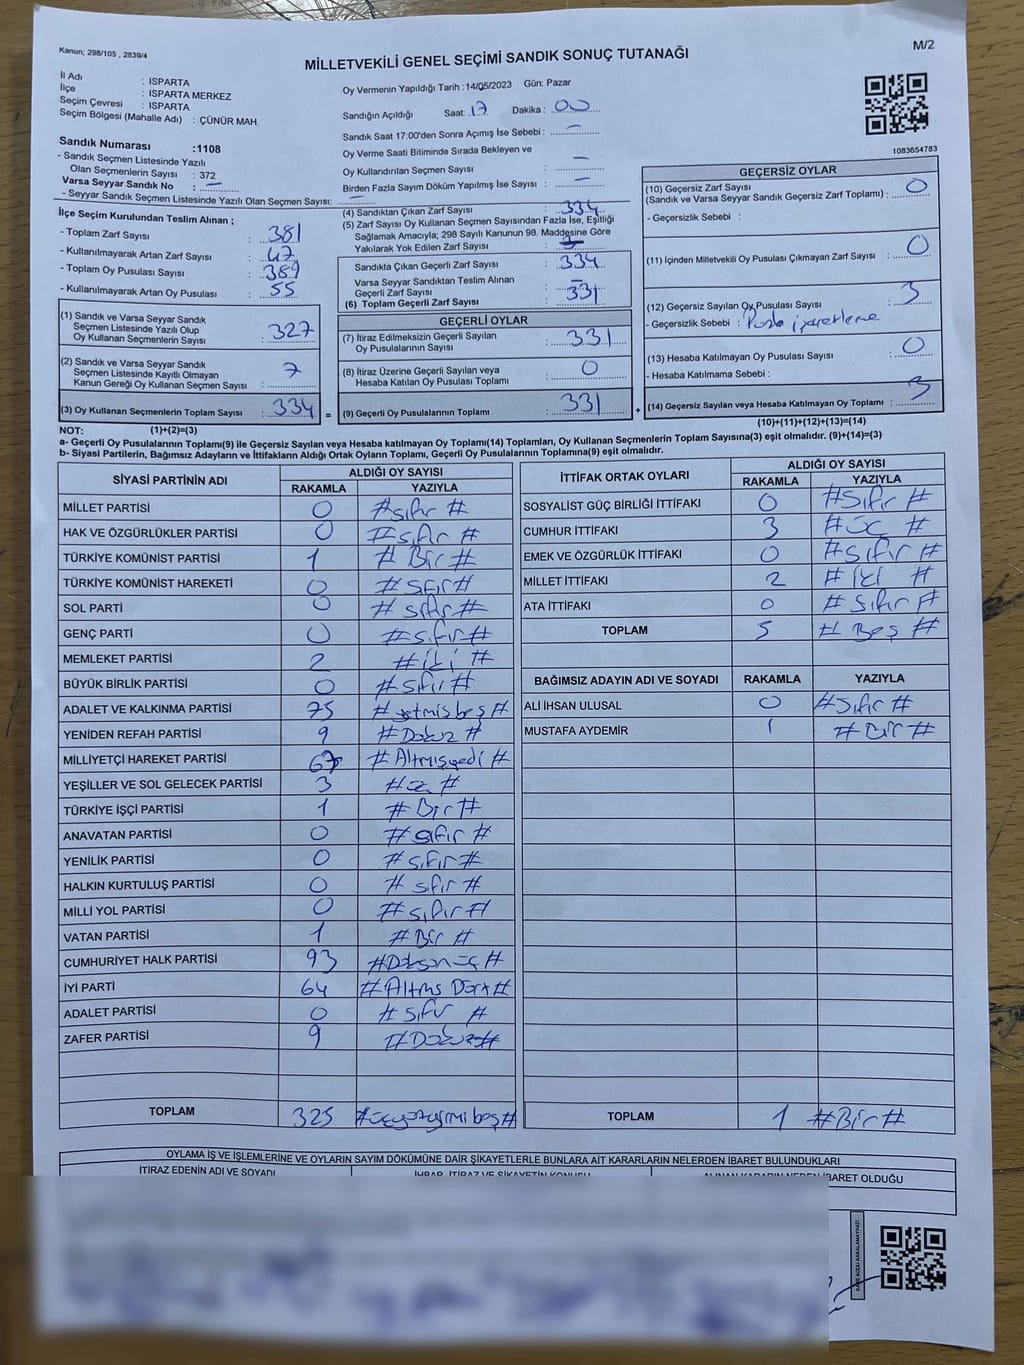 Kanun; 298/105 , 2839/4
M/2
MİLLETVEKİLİ GENEL SEÇİMİ SANDIK SONUÇ TUTANAĞI
İl Adı : ISPARTA
İlçe : ISPARTA MERKEZ
Seçim Çevresi : ISPARTA
Seçim Bölgesi (Mahalle Adı) : ÇÜNÜR MAH.
Sandık Numarası :1108
- Sandık Seçmen Listesinde Yazılı
Olan Seçmenlerin Sayısı : 372
Varsa Seyyar Sandık No : –
- Seyyar Sandık Seçmen Listesinde Yazılı Olan Seçmen Sayısı: –
Oy Vermenin Yapıldığı Tarih :14/05/2023 Gün: Pazar
Sandığın Açıldığı Saat: 17 Dakika : 00
Sandık Saat 17:00'den Sonra Açımış İse Sebebi : –
Oy Verme Saati Bitiminde Sırada Bekleyen ve
Oy Kullandırılan Seçmen Sayısı : –
Birden Fazla Sayım Döküm Yapılmış İse Sayısı : –
1083654783
İlçe Seçim Kurulundan Teslim Alınan ;
- Toplam Zarf Sayısı : 381
- Kullanılmayarak Artan Zarf Sayısı : 47
- Toplam Oy Pusulası Sayısı : 389
- Kullanılmayarak Artan Oy Pusulası : 55
(1) Sandık ve Varsa Seyyar Sandık
Seçmen Listesinde Yazılı Olup
Oy Kullanan Seçmenlerin Sayısı : 327
(2) Sandık ve Varsa Seyyar Sandık
Seçmen Listesinde Kayıtlı Olmayan
Kanun Gereği Oy Kullanan Seçmen Sayısı : 7
(3) Oy Kullanan Seçmenlerin Toplam Sayısı : 334 =
(4) Sandıktan Çıkan Zarf Sayısı : 334
(5) Zarf Sayısı Oy Kullanan Seçmen Sayısından Fazla İse, Eşitliği
Sağlamak Amacıyla; 298 Sayılı Kanunun 98. Maddesine Göre
Yakılarak Yok Edilen Zarf Sayısı :
Sandıkta Çıkan Geçerli Zarf Sayısı : 334
Varsa Seyyar Sandıktan Teslim Alınan
Geçerli Zarf Sayısı : –
(6) Toplam Geçerli Zarf Sayısı : 331
GEÇERLİ OYLAR
(7) İtiraz Edilmeksizin Geçerli Sayılan
Oy Pusulalarının Sayısı : 331
(8) İtiraz Üzerine Geçerli Sayılan veya
Hesaba Katılan Oy Pusulası Toplamı : 0
(9) Geçerli Oy Pusulalarının Toplamı : 331 +
GEÇERSİZ OYLAR
(10) Geçersiz Zarf Sayısı
(Sandık ve Varsa Seyyar Sandık Geçersiz Zarf Toplamı) : 0
- Geçersizlik Sebebi :
(11) İçinden Milletvekili Oy Pusulası Çıkmayan Zarf Sayısı : 0
(12) Geçersiz Sayılan Oy Pusulası Sayısı : 3
- Geçersizlik Sebebi : işaretleme
(13) Hesaba Katılmayan Oy Pusulası Sayısı : 0
- Hesaba Katılmama Sebebi :
(14) Geçersiz Sayılan veya Hesaba Katılmayan Oy Toplamı : 3
NOT: (1)+(2)=(3) (10)+(11)+(12)+(13)=(14)
a- Geçerli Oy Pusulalarının Toplamı(9) ile Geçersiz Sayılan veya Hesaba katılmayan Oy Toplamı(14) Toplamları, Oy Kullanan Seçmenlerin Toplam Sayısına(3) eşit olmalıdır. (9)+(14)=(3)
b- Siyasi Partilerin, Bağımsız Adayların ve İttifakların Aldığı Ortak Oyların Toplamı, Geçerli Oy Pusulalarının Toplamına(9) eşit olmalıdır.
SİYASİ PARTİNİN ADI ALDIĞI OY SAYISI
RAKAMLA YAZIYLA
MİLLET PARTİSİ 0 #sıfır #
HAK VE ÖZGÜRLÜKLER PARTİSİ 0 #sıfır #
TÜRKİYE KOMÜNİST PARTİSİ 1 # Bir #
TÜRKİYE KOMÜNİST HAREKETİ 0 # sıfır#
SOL PARTİ 0 # sıfır #
GENÇ PARTİ 0 #sıfır #
MEMLEKET PARTİSİ 2 #iki #
BÜYÜK BİRLİK PARTİSİ 0 # sıfır #
ADALET VE KALKINMA PARTİSİ 75 #yetmişbeş#
YENİDEN REFAH PARTİSİ 9 #Dokuz #
MİLLİYETÇİ HAREKET PARTİSİ 67 # Altmışyedi #
YEŞİLLER VE SOL GELECEK PARTİSİ 3 #üç #
TÜRKİYE İŞÇİ PARTİSİ 1 # Bir #
ANAVATAN PARTİSİ 0 # sıfır #
YENİLİK PARTİSİ 0 # sıfır #
HALKIN KURTULUŞ PARTİSİ 0 # sıfır #
MİLLİ YOL PARTİSİ 0 # sıfır #
VATAN PARTİSİ 1 # Bir #
CUMHURİYET HALK PARTİSİ 93 #Doksanüç #
İYİ PARTİ 64 #Altmış Dört#
ADALET PARTİSİ 0 # sıfır #
ZAFER PARTİSİ 9 #Dokuz#
TOPLAM 325 #üçyüzyirmibeş#
İTTİFAK ORTAK OYLARI ALDIĞI OY SAYISI
RAKAMLA YAZIYLA
SOSYALİST GÜÇ BİRLİĞİ İTTİFAKI 0 #Sıfır #
CUMHUR İTTİFAKI 3 # üç #
EMEK VE ÖZGÜRLÜK İTTİFAKI 0 #sıfır #
MİLLET İTTİFAKI 2 # iki #
ATA İTTİFAKI 0 # Sıfır #
TOPLAM 5 # Beş #
BAĞIMSIZ ADAYIN ADI VE SOYADI RAKAMLA YAZIYLA
ALİ İHSAN ULUSAL 0 #Sıfır #
MUSTAFA AYDEMİR 1 # Bir #
TOPLAM 1 #Bir #
OYLAMA İŞ VE İŞLEMLERİNE VE OYLARIN SAYIM DÖKÜMÜNE DAİR ŞİKAYETLERLE BUNLARA AİT KARARLARIN NELERDEN İBARET BULUNDUKLARI
İTİRAZ EDENİN ADI VE SOYADI İHBAR, İTİRAZ VE ŞİKAYETİN KONUSU ALINAN KARARIN NEDEN İBARET OLDUĞU